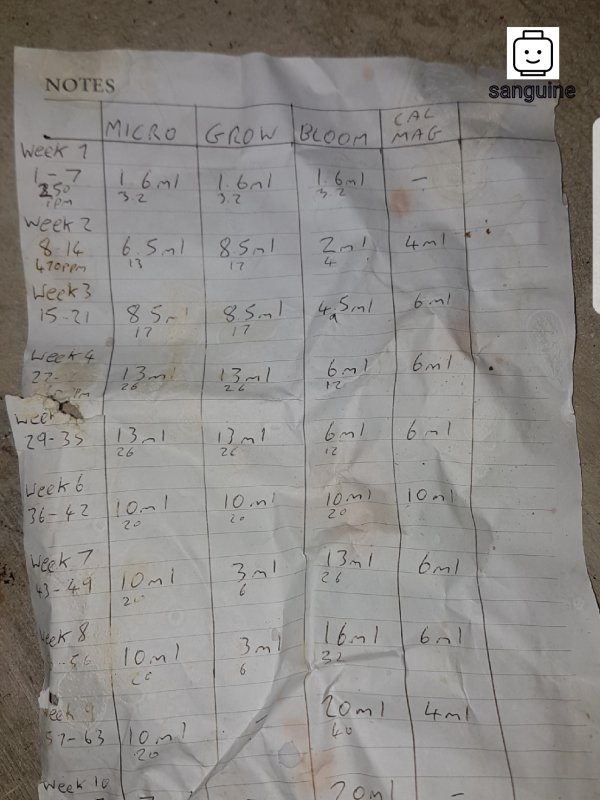 sanguine
NOTES
MICRO GROW BLOOM CAL MAG
Week 1
1-7 1.6ml 1.6ml 1.6ml -
350 3.2 3.2 3.2
ppm
Week 2
8-14 6.5ml 8.5ml 2ml 4ml
470ppm 13 17 4
Week 3
15-21 8.5ml 8.5ml 4.5ml 6ml
17 17 9
Week 4
22- 13ml 13ml 6ml 6ml
26 26 12
Week
29-35 13ml 13ml 6ml 6ml
26 26 12
Week 6
36-42 10ml 10ml 10ml 10ml
20 20 20
Week 7
43-49 10ml 3ml 13ml 6ml
20 6 26
Week 8
-56 10ml 3ml 16ml 6ml
20 6 32
Week 9
57-63 10ml - 20ml 4ml
20 40
Week 10
20ml -